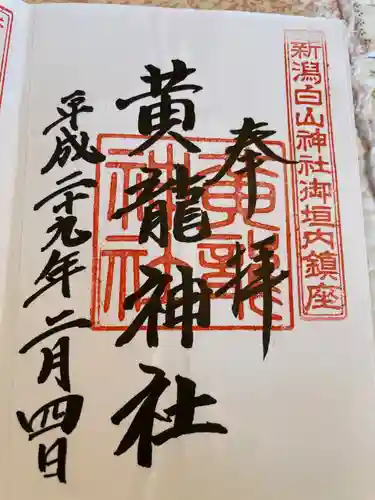 新潟白山神社御垣内鎮座
奉拝
黄龍神社
黄龍神社
平成二十九年二月四日